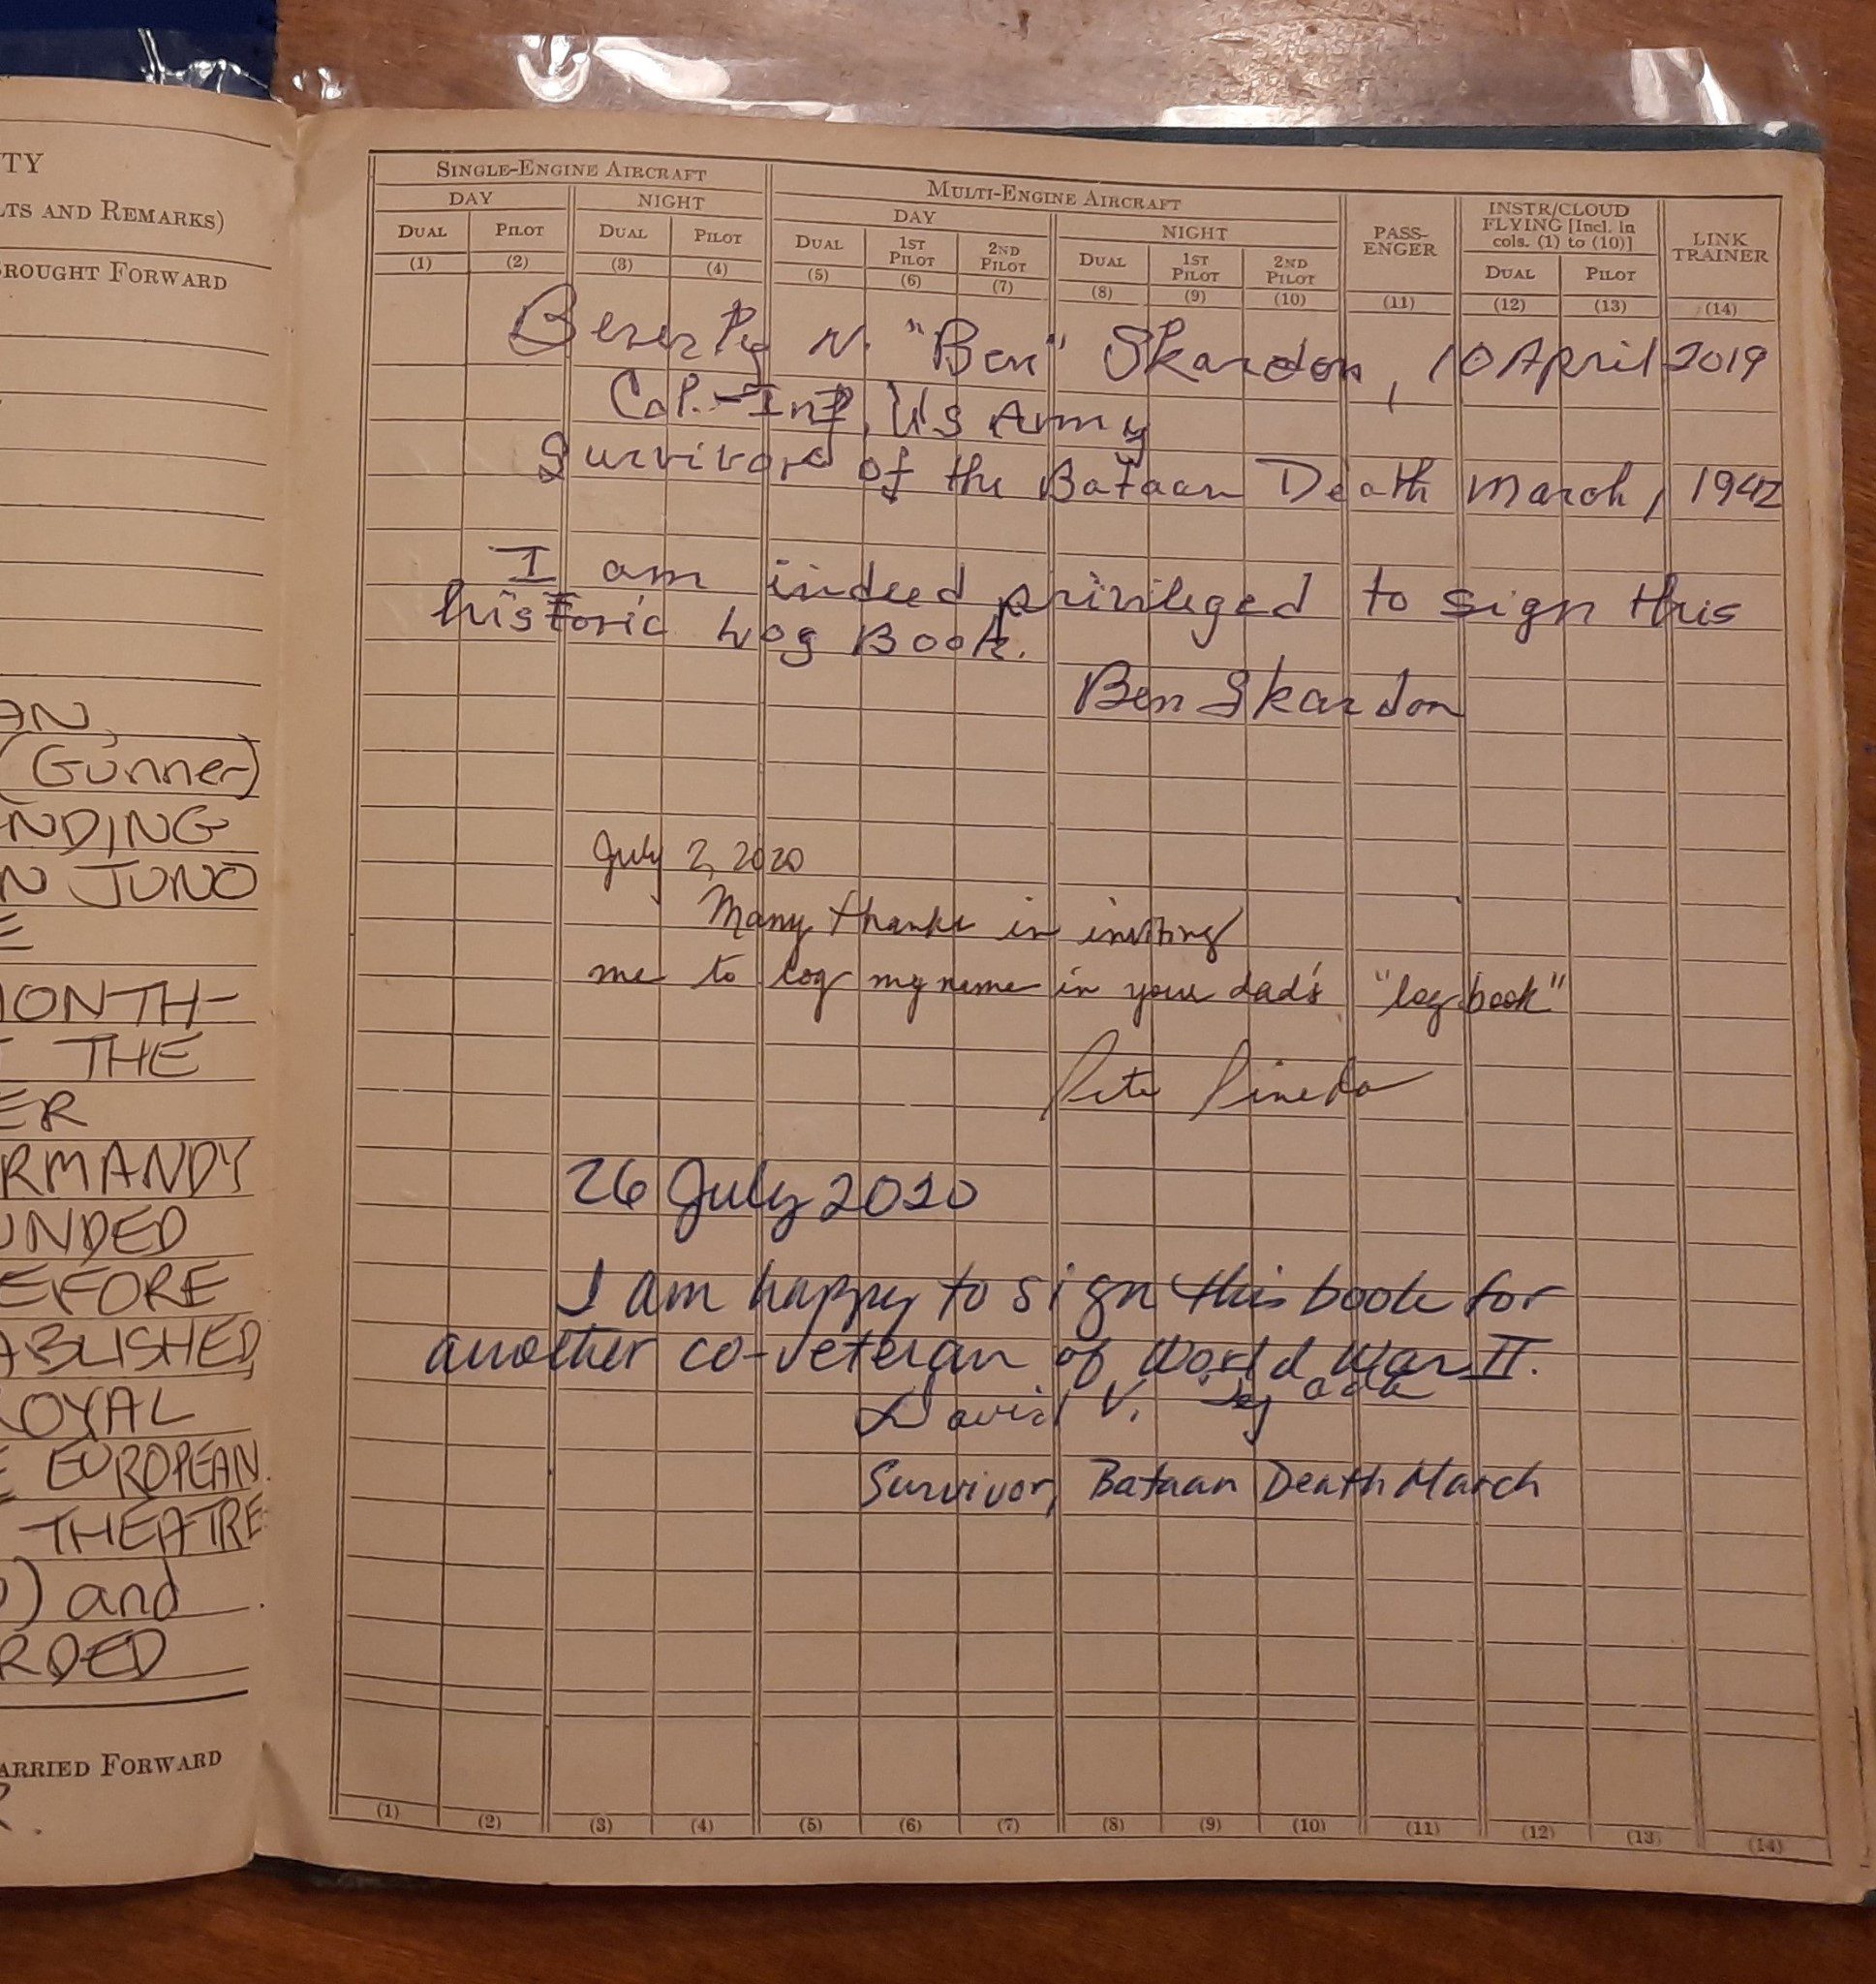 TY
LTS AND REMARKS)
BROUGHT FORWARD
AN,
(Gunner)
NDING
N JUNO
E
MONTH-
T THE
ER
RMANDY
UNDED
EFORE
ABLISHED,
ROYAL
E EUROPEAN
THEATRE
) and
RDED
ARRIED FORWARD
R.
SINGLE-ENGINE AIRCRAFT MULTI-ENGINE AIRCRAFT PASS-ENGER INSTR/CLOUD FLYING [Incl. in cols. (1) to (10)] LINK TRAINER
DAY NIGHT DAY NIGHT
DUAL PILOT DUAL PILOT DUAL 1ST PILOT 2ND PILOT DUAL 1ST PILOT 2ND PILOT DUAL PILOT
(1) (2) (3) (4) (5) (6) (7) (8) (9) (10) (11) (12) (13) (14)
Beverly N. "Ben" Skardon, 10 April 2019
Col.-Inf, US Army
Survivor of the Bataan Death March, 1942
I am indeed privileged to sign this
historic Log Book.
Ben Skardon
July 2, 2020
Many thanks in inviting
me to log my name in your dad's "log book"
Pete Pineda
26 July 2020
I am happy to sign this book for
another co-veteran of World War II.
David V.
Survivor, Bataan Death March
(1) (2) (3) (4) (5) (6) (7) (8) (9) (10) (11) (12) (13) (14)